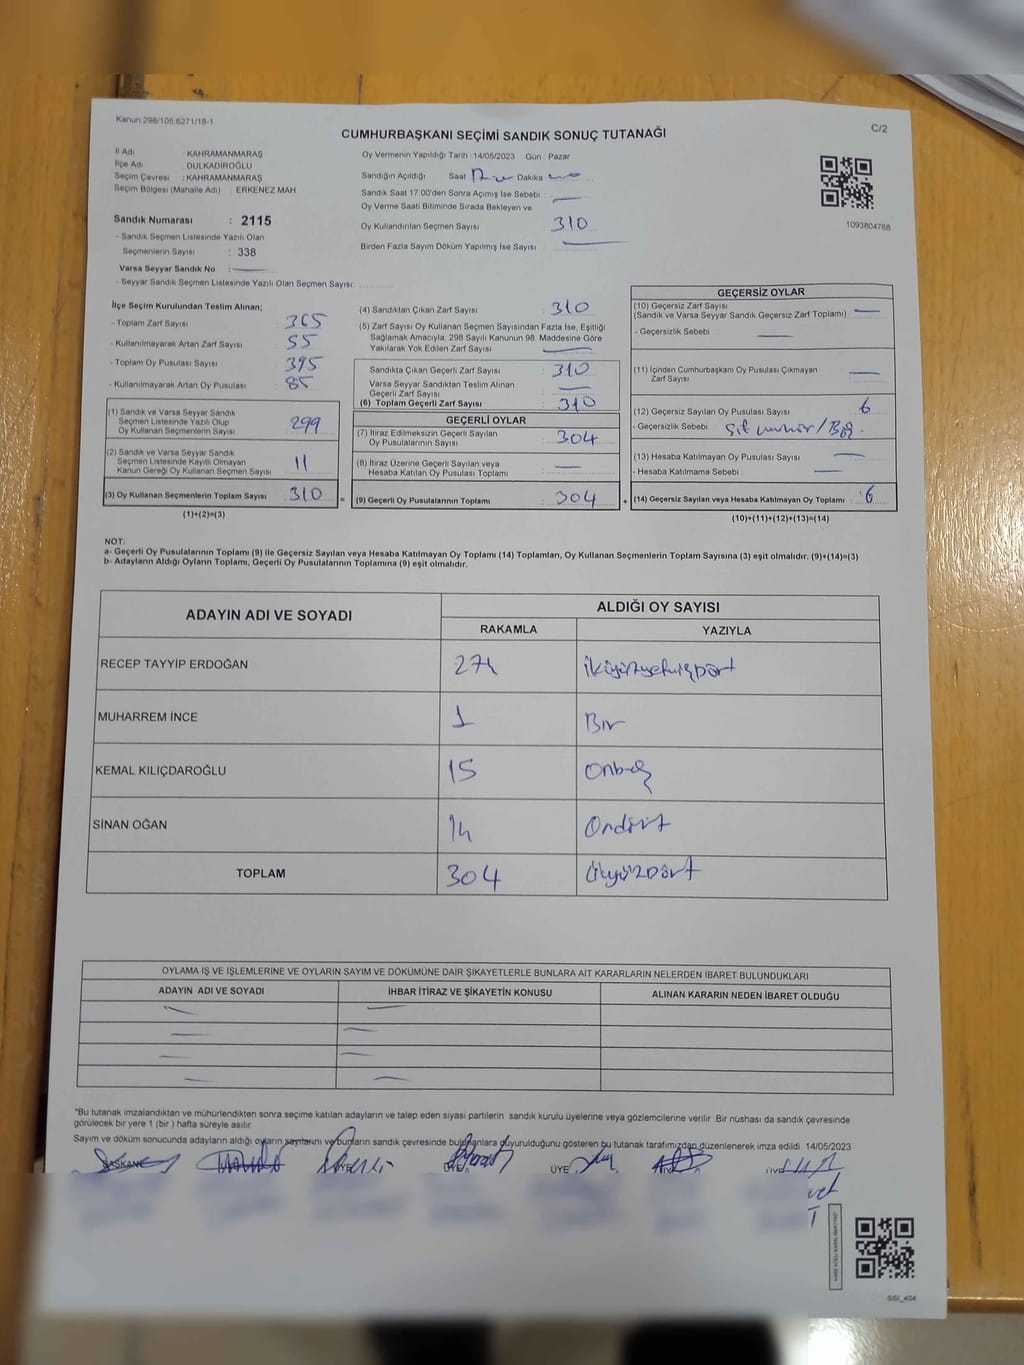 Kanun:298/105,6271/18-1
CUMHURBAŞKANI SEÇİMİ SANDIK SONUÇ TUTANAĞI
C/2
İl Adı KAHRAMANMARAŞ
İlçe Adı DULKADİROĞLU
Seçim Çevresi : KAHRAMANMARAŞ
Seçim Bölgesi (Mahalle Adı) : ERKENEZ MAH
Sandık Numarası : 2115
- Sandık Seçmen Listesinde Yazılı Olan
Seçmenlerin Sayısı : 338
Varsa Seyyar Sandık No :
- Seyyar Sandık Seçmen Listesinde Yazılı Olan Seçmen Sayısı:
Oy Vermenin Yapıldığı Tarih :14/05/2023 Gün : Pazar
Sandığın Açıldığı Saat Dakika
Sandık Saat 17:00'den Sonra Açımış İse Sebebi :
Oy Verme Saati Bitiminde Sırada Bekleyen ve
Oy Kullandırılan Seçmen Sayısı 310
Birden Fazla Sayım Döküm Yapılmış İse Sayısı :
1093804768
İlçe Seçim Kurulundan Teslim Alınan;
- Toplam Zarf Sayısı : 365
- Kullanılmayarak Artan Zarf Sayısı : 55
- Toplam Oy Pusulası Sayısı : 395
- Kullanılmayarak Artan Oy Pusulası : 85
(1) Sandık ve Varsa Seyyar Sandık
Seçmen Listesinde Yazılı Olup
Oy Kullanan Seçmenlerin Sayısı : 299
(2) Sandık ve Varsa Seyyar Sandık
Seçmen Listesinde Kayıtlı Olmayan
Kanun Gereği Oy Kullanan Seçmen Sayısı : 11
(3) Oy Kullanan Seçmenlerin Toplam Sayısı : 310 =
(1)+(2)=(3)
(4) Sandıktan Çıkan Zarf Sayısı : 310
(5) Zarf Sayısı Oy Kullanan Seçmen Sayısından Fazla İse, Eşitliği
Sağlamak Amacıyla; 298 Sayılı Kanunun 98. Maddesine Göre
Yakılarak Yok Edilen Zarf Sayısı
Sandıkta Çıkan Geçerli Zarf Sayısı : 310
Varsa Seyyar Sandıktan Teslim Alınan
Geçerli Zarf Sayısı
(6) Toplam Geçerli Zarf Sayısı : 310
GEÇERLİ OYLAR
(7) İtiraz Edilmeksizin Geçerli Sayılan
Oy Pusulalarının Sayısı : 304
(8) İtiraz Üzerine Geçerli Sayılan veya
Hesaba Katılan Oy Pusulası Toplamı :
(9) Geçerli Oy Pusulalarının Toplamı : 304 +
GEÇERSİZ OYLAR
(10) Geçersiz Zarf Sayısı
(Sandık ve Varsa Seyyar Sandık Geçersiz Zarf Toplamı) :
- Geçersizlik Sebebi :
(11) İçinden Cumhurbaşkanı Oy Pusulası Çıkmayan
Zarf Sayısı
(12) Geçersiz Sayılan Oy Pusulası Sayısı : 6
- Geçersizlik Sebebi :
(13) Hesaba Katılmayan Oy Pusulası Sayısı :
- Hesaba Katılmama Sebebi :
(14) Geçersiz Sayılan veya Hesaba Katılmayan Oy Toplamı : 6
(10)+(11)+(12)+(13)=(14)
NOT:
a- Geçerli Oy Pusulalarının Toplamı (9) ile Geçersiz Sayılan veya Hesaba Katılmayan Oy Toplamı (14) Toplamları, Oy Kullanan Seçmenlerin Toplam Sayısına (3) eşit olmalıdır. (9)+(14)=(3)
b- Adayların Aldığı Oyların Toplamı, Geçerli Oy Pusulalarının Toplamına (9) eşit olmalıdır.
ADAYIN ADI VE SOYADI ALDIĞI OY SAYISI
RAKAMLA YAZIYLA
RECEP TAYYİP ERDOĞAN 274 ikiyüzyetmişdört
MUHARREM İNCE 1 Bir
KEMAL KILIÇDAROĞLU 15 Onbeş
SİNAN OĞAN 14 Ondört
TOPLAM 304 üçyüzDört
OYLAMA İŞ VE İŞLEMLERİNE VE OYLARIN SAYIM VE DÖKÜMÜNE DAİR ŞİKAYETLERLE BUNLARA AİT KARARLARIN NELERDEN İBARET BULUNDUKLARI
ADAYIN ADI VE SOYADI İHBAR İTİRAZ VE ŞİKAYETİN KONUSU ALINAN KARARIN NEDEN İBARET OLDUĞU
*Bu tutanak imzalandıktan ve mühürlendikten sonra seçime katılan adayların ve talep eden siyasi partilerin sandık kurulu üyelerine veya gözlemcilerine verilir. Bir nüshası da sandık çevresinde
görülecek bir yere 1 (bir ) hafta süreyle asılır.
Sayım ve döküm sonucunda adayların aldığı oyların sayılarını ve bunların sandık çevresinde bulunanlara duyurulduğunu gösteren bu tutanak tarafımızdan düzenlenerek imza edildi. 14/05/2023
BAŞKAN ÜYE ÜYE ÜYE ÜYE
SSİ_404